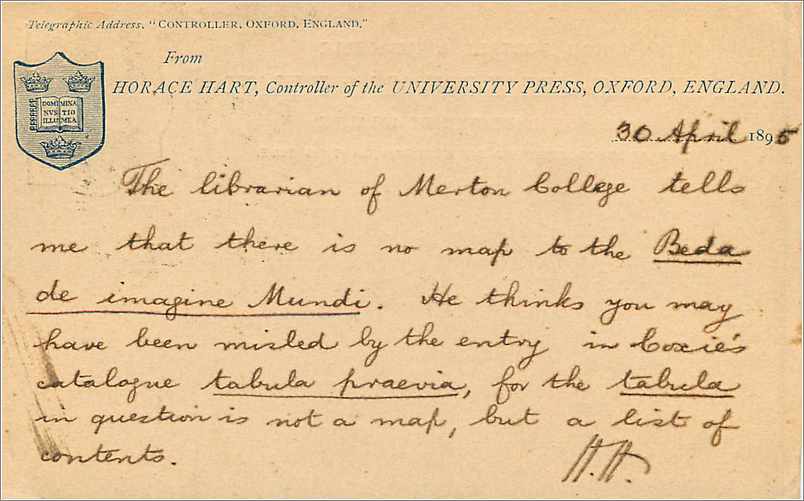 Telegraphic Address, "CONTROLLER, OXFORD, ENGLAND."
From
HORACE HART, Controller of the UNIVERSITY PRESS, OXFORD, ENGLAND.
DOMI MINA
NVS TIO
ILLU MEA
30 April 1895
The librarian of Merton College tells
me that there is no map to the Beda
de imagine Mundi. He thinks you may
have been misled by the entry in Coxie's
catalogue tabula praevia, for the tabula
in question is not a map, but a list of
contents.
H.H.